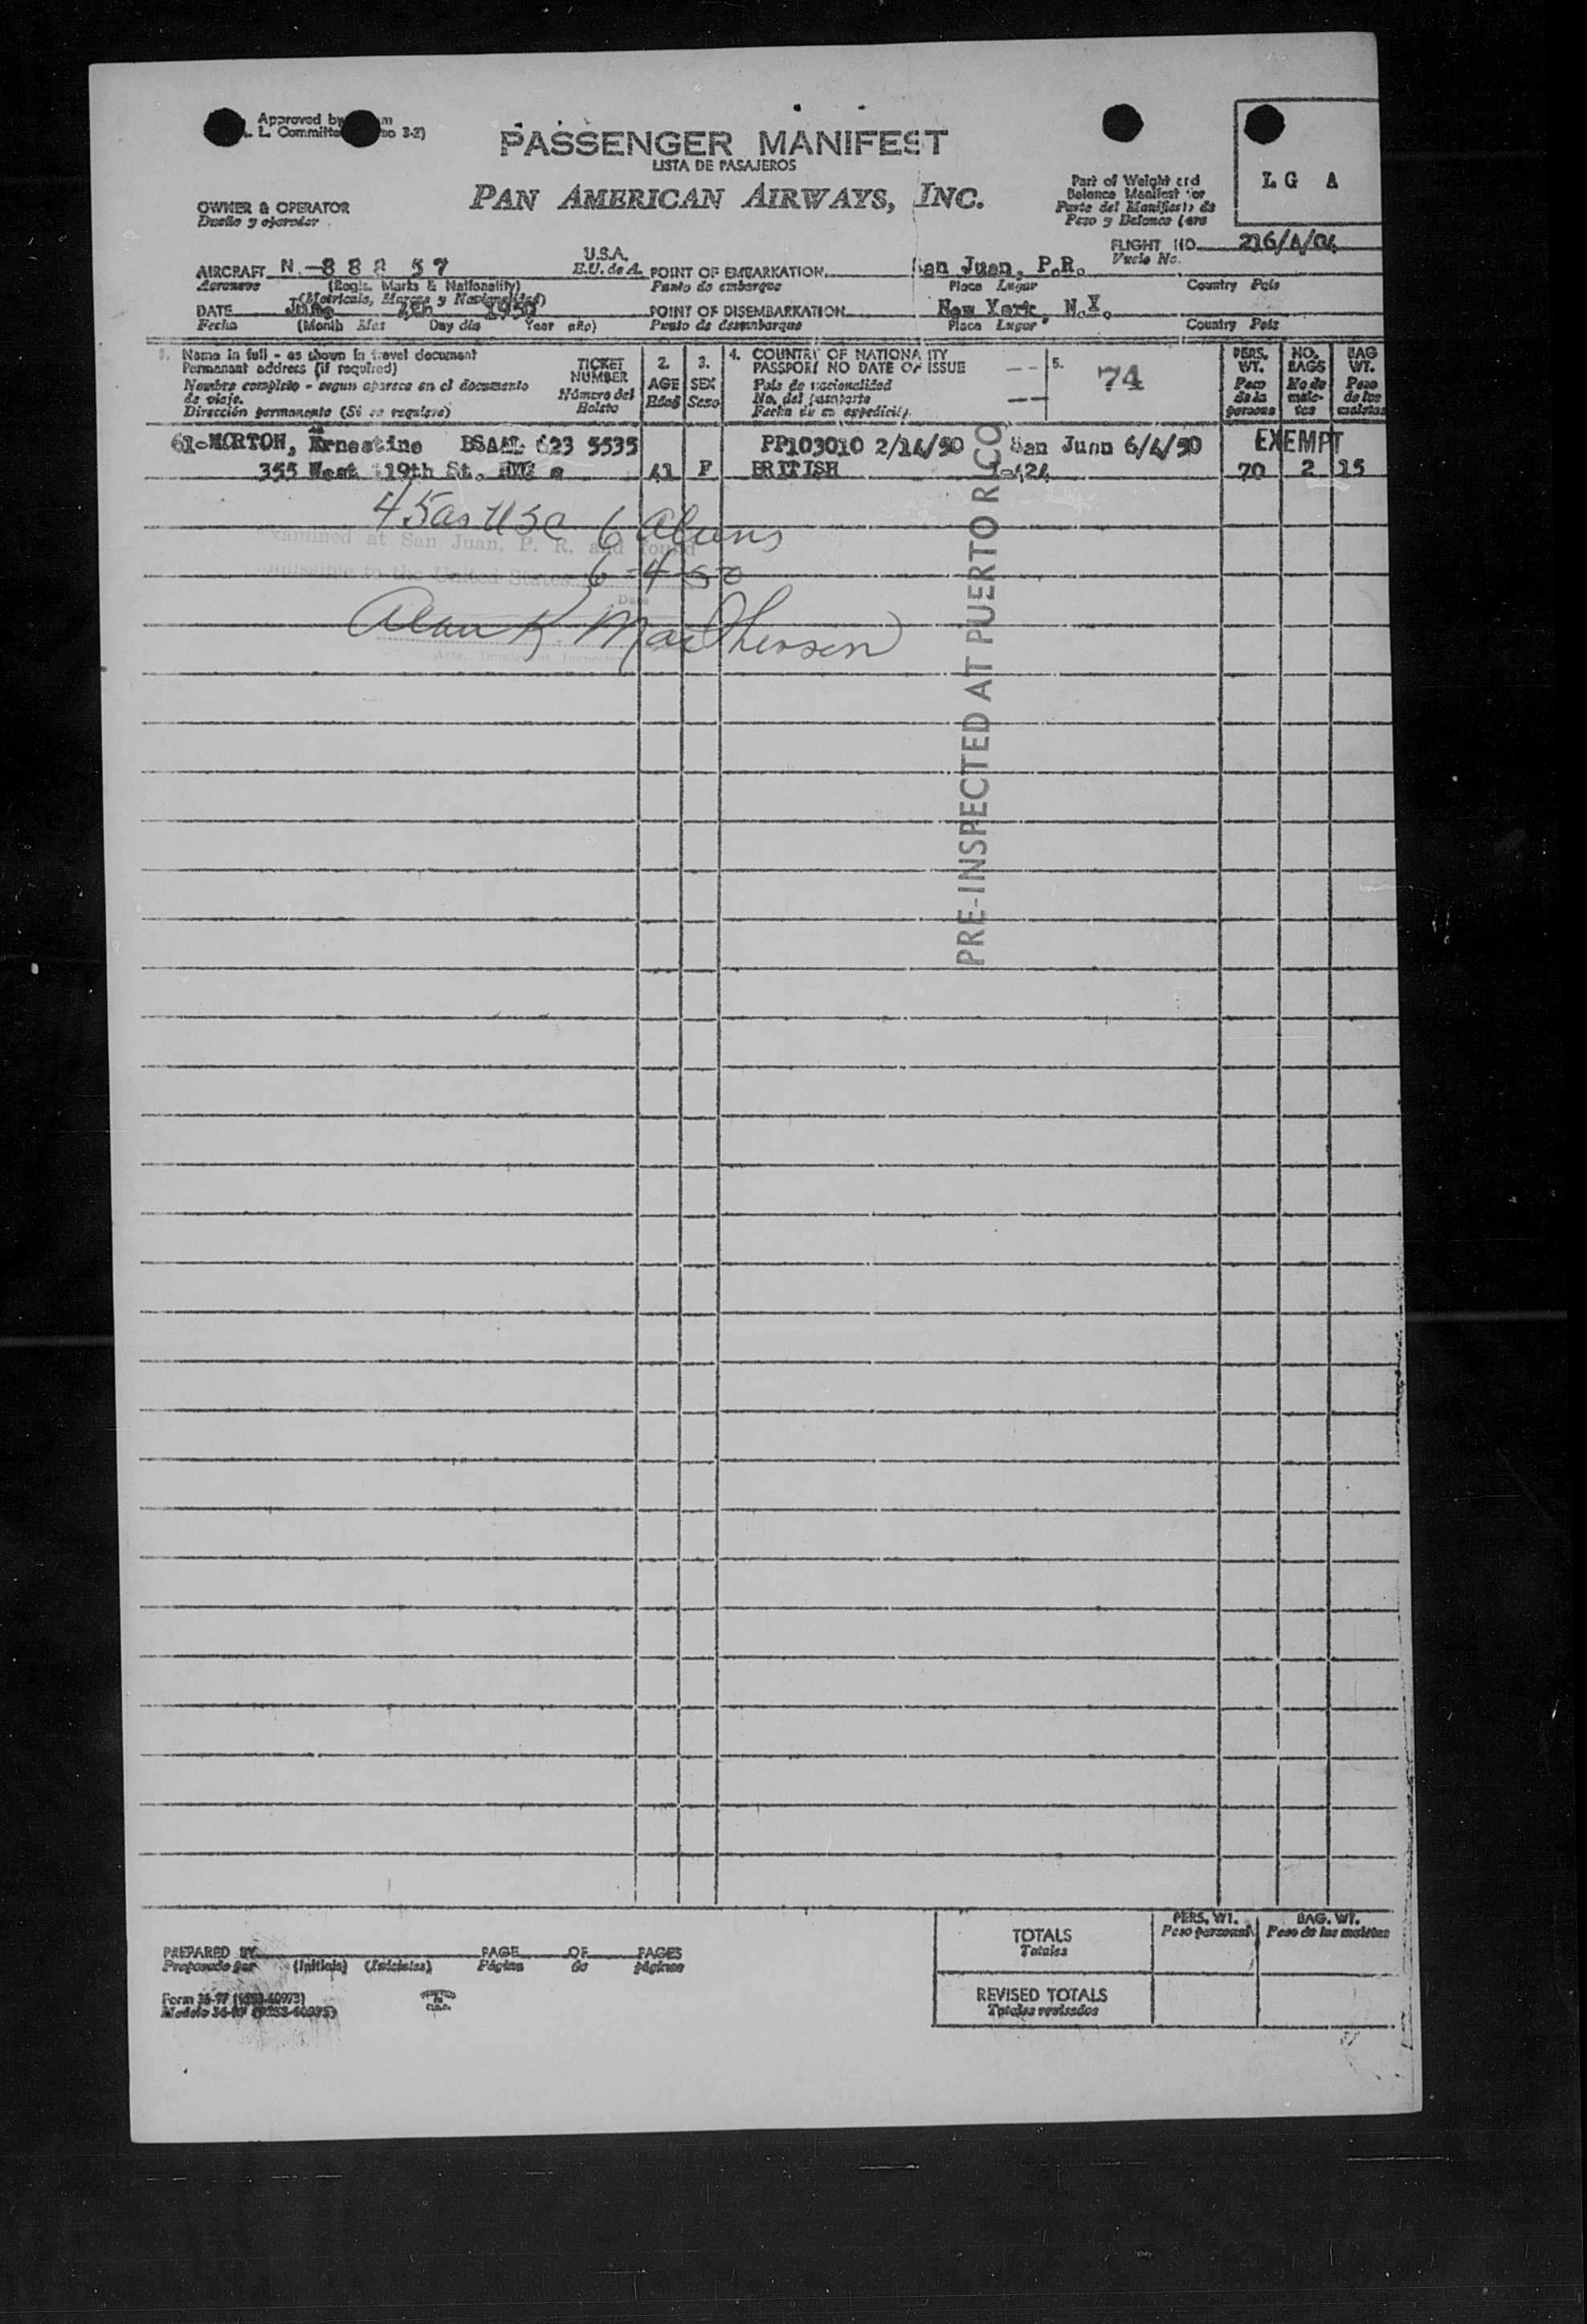 Approved by
L. Committe
PASSENGER MANIFEST
LISTA DE PASAJEROS
PAN AMERICAN AIRWAYS, INC.
OWNER & OPERATOR
Dueño y
Part of Weight and
Balance Manifest for
Parte del Manifiesto de
Peso y Balance
L G A
FLIGHT NO. 216/4/04
Vuelo No.
AIRCRAFT N-888 57
Aeronave
(Regis. Marks & Nationality)
(Matricula, Marcas y Nacionalidad)
U.S.A.
E.U. de A.
POINT OF EMBARKATION San Juan, P.R.
Punto de embarque
Place Lugar
Country País
DATE June 4th 1950
Fecha (Month Mes Day día Year año)
POINT OF DISEMBARKATION New York, N.Y.
Punto de desembarque
Place Lugar
Country País
1. Name in full - as shown in travel document
Permanent address (if required)
Nombre completo - segun aparece en el documento
de viaje.
Dirección permanente (Si se requiere)
TICKET
NUMBER
Número del
Boleto
2.
AGE
Edad
3.
SEX
Sexo
4. COUNTRY OF NATIONALITY
PASSPORT NO DATE OF ISSUE
País de nacionalidad
No. del pasaporte
Fecha de su expedición
5.
74
PERS.
WT.
Peso
de la
persona
NO.
BAGS
No de
male-
tas
BAG
WT.
Peso
de las
maletas
61-MORTON, Ernestine BSAAL 623 5535 PP103010 2/14/50 San Juan 6/4/50 EXEMPT
355 West 119th St. 41 F BRITISH I-424 70 2 15
45as USC 6 Aliens
Examined at San Juan, P. R. and found
admissible to the United States.
6-4-50
Date
Alan K. MacPherson
PRE-INSPECTED AT PUERTO RICO
PREPARED BY
Preparado por (Initials) (Iniciales)
PAGE OF PAGES
Página de páginas
Form 36-97
Modelo 36-97
TOTALS
Totales
PERS. WT.
Peso personal
BAG. WT.
Peso de las maletas
REVISED TOTALS
Totales revisados